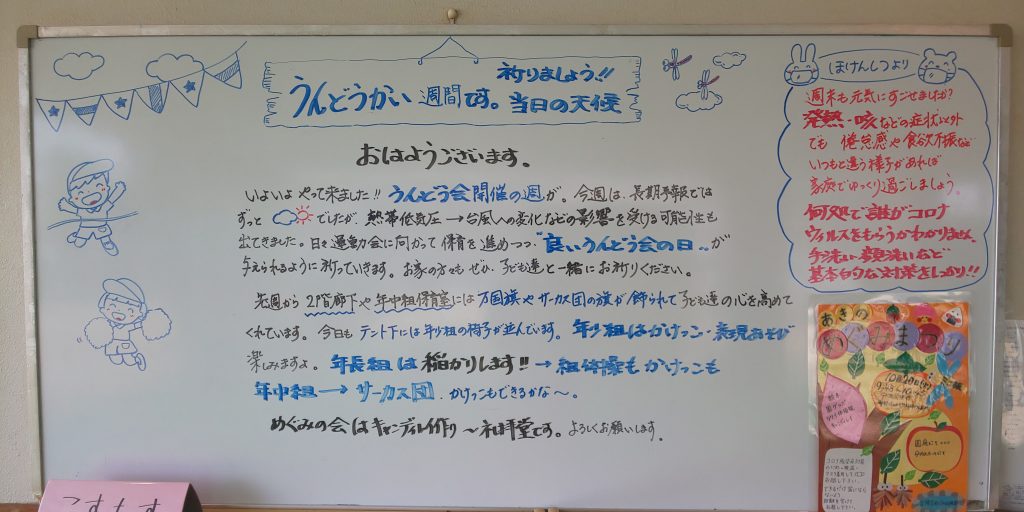 祈りましょう!!
うんどうかい週間です。当日の天候
おはようございます。
いよいよやって来ました!!うんどう会開催の週が。今週は、長期予報では
ずっと でしたが、熱帯低気圧→台風への変化などの影響を受ける可能性も
出てきました。日々運動会に向かって保育を進めつつ"良いうんどう会の日"が
与えられるように祈っていきます。お家の方々もぜひ、子ども達と一緒にお祈りください。
先週から2階廊下や年中組保育室には万国旗やサーカス団の旗が飾られて子ども達の心を高めて
くれています。今日もテント下には年少組の椅子が並んでいます。年少組はかけっこ・表現あそび
楽しみますよ。年長組は稲かりします!!→組体操もかけっこも
年中組→サーカス団。かけっこもできるかな〜。
めぐみの会はキャンドル作り〜礼拝堂です。よろしくお願いします。
ほけんしつより
週末も元気にすごせましたか?
発熱・咳などの症状以外
でも倦怠感や食欲不振など
いつもと違う様子があれば
家庭でゆっくり過ごしましょう。
何処で誰がコロナ
ウィルスをもらうかわかりません。
手洗い・顔洗いなど
基本的な対策をしっかり!!
あきの
めぐみまつり
こすもす